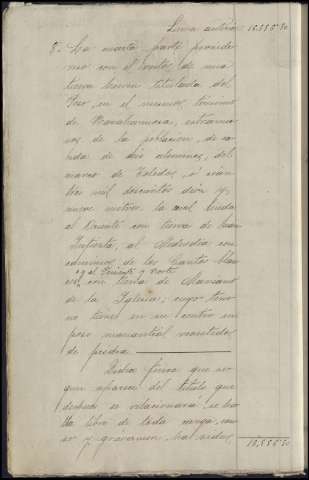 Suma anterior 10.550'50
8. La cuarta parte proindi
viso con el  de una
tierra  titulada del
Pozo, en el mismo término
de  extramu
ros de la población, de ca
bida de dos alemines, del
marco de Toledo, ó sean
tres mil doscientos diez y
nueve metros la cual linda
al Oriente con tierra de Juan
 al Mediodia con
 de los Santos 
y al Poniente y Norte
con tierra de Manzano
de la Iglesia; cuyo terre
no tiene en su centro un
pozo manantial revestido
de piedra
Dicha finca que se
gun aparece del título que
despues se relacionará se ha
lla libre de toda carga, cen
so y gravamen, ha sido
10.550'50